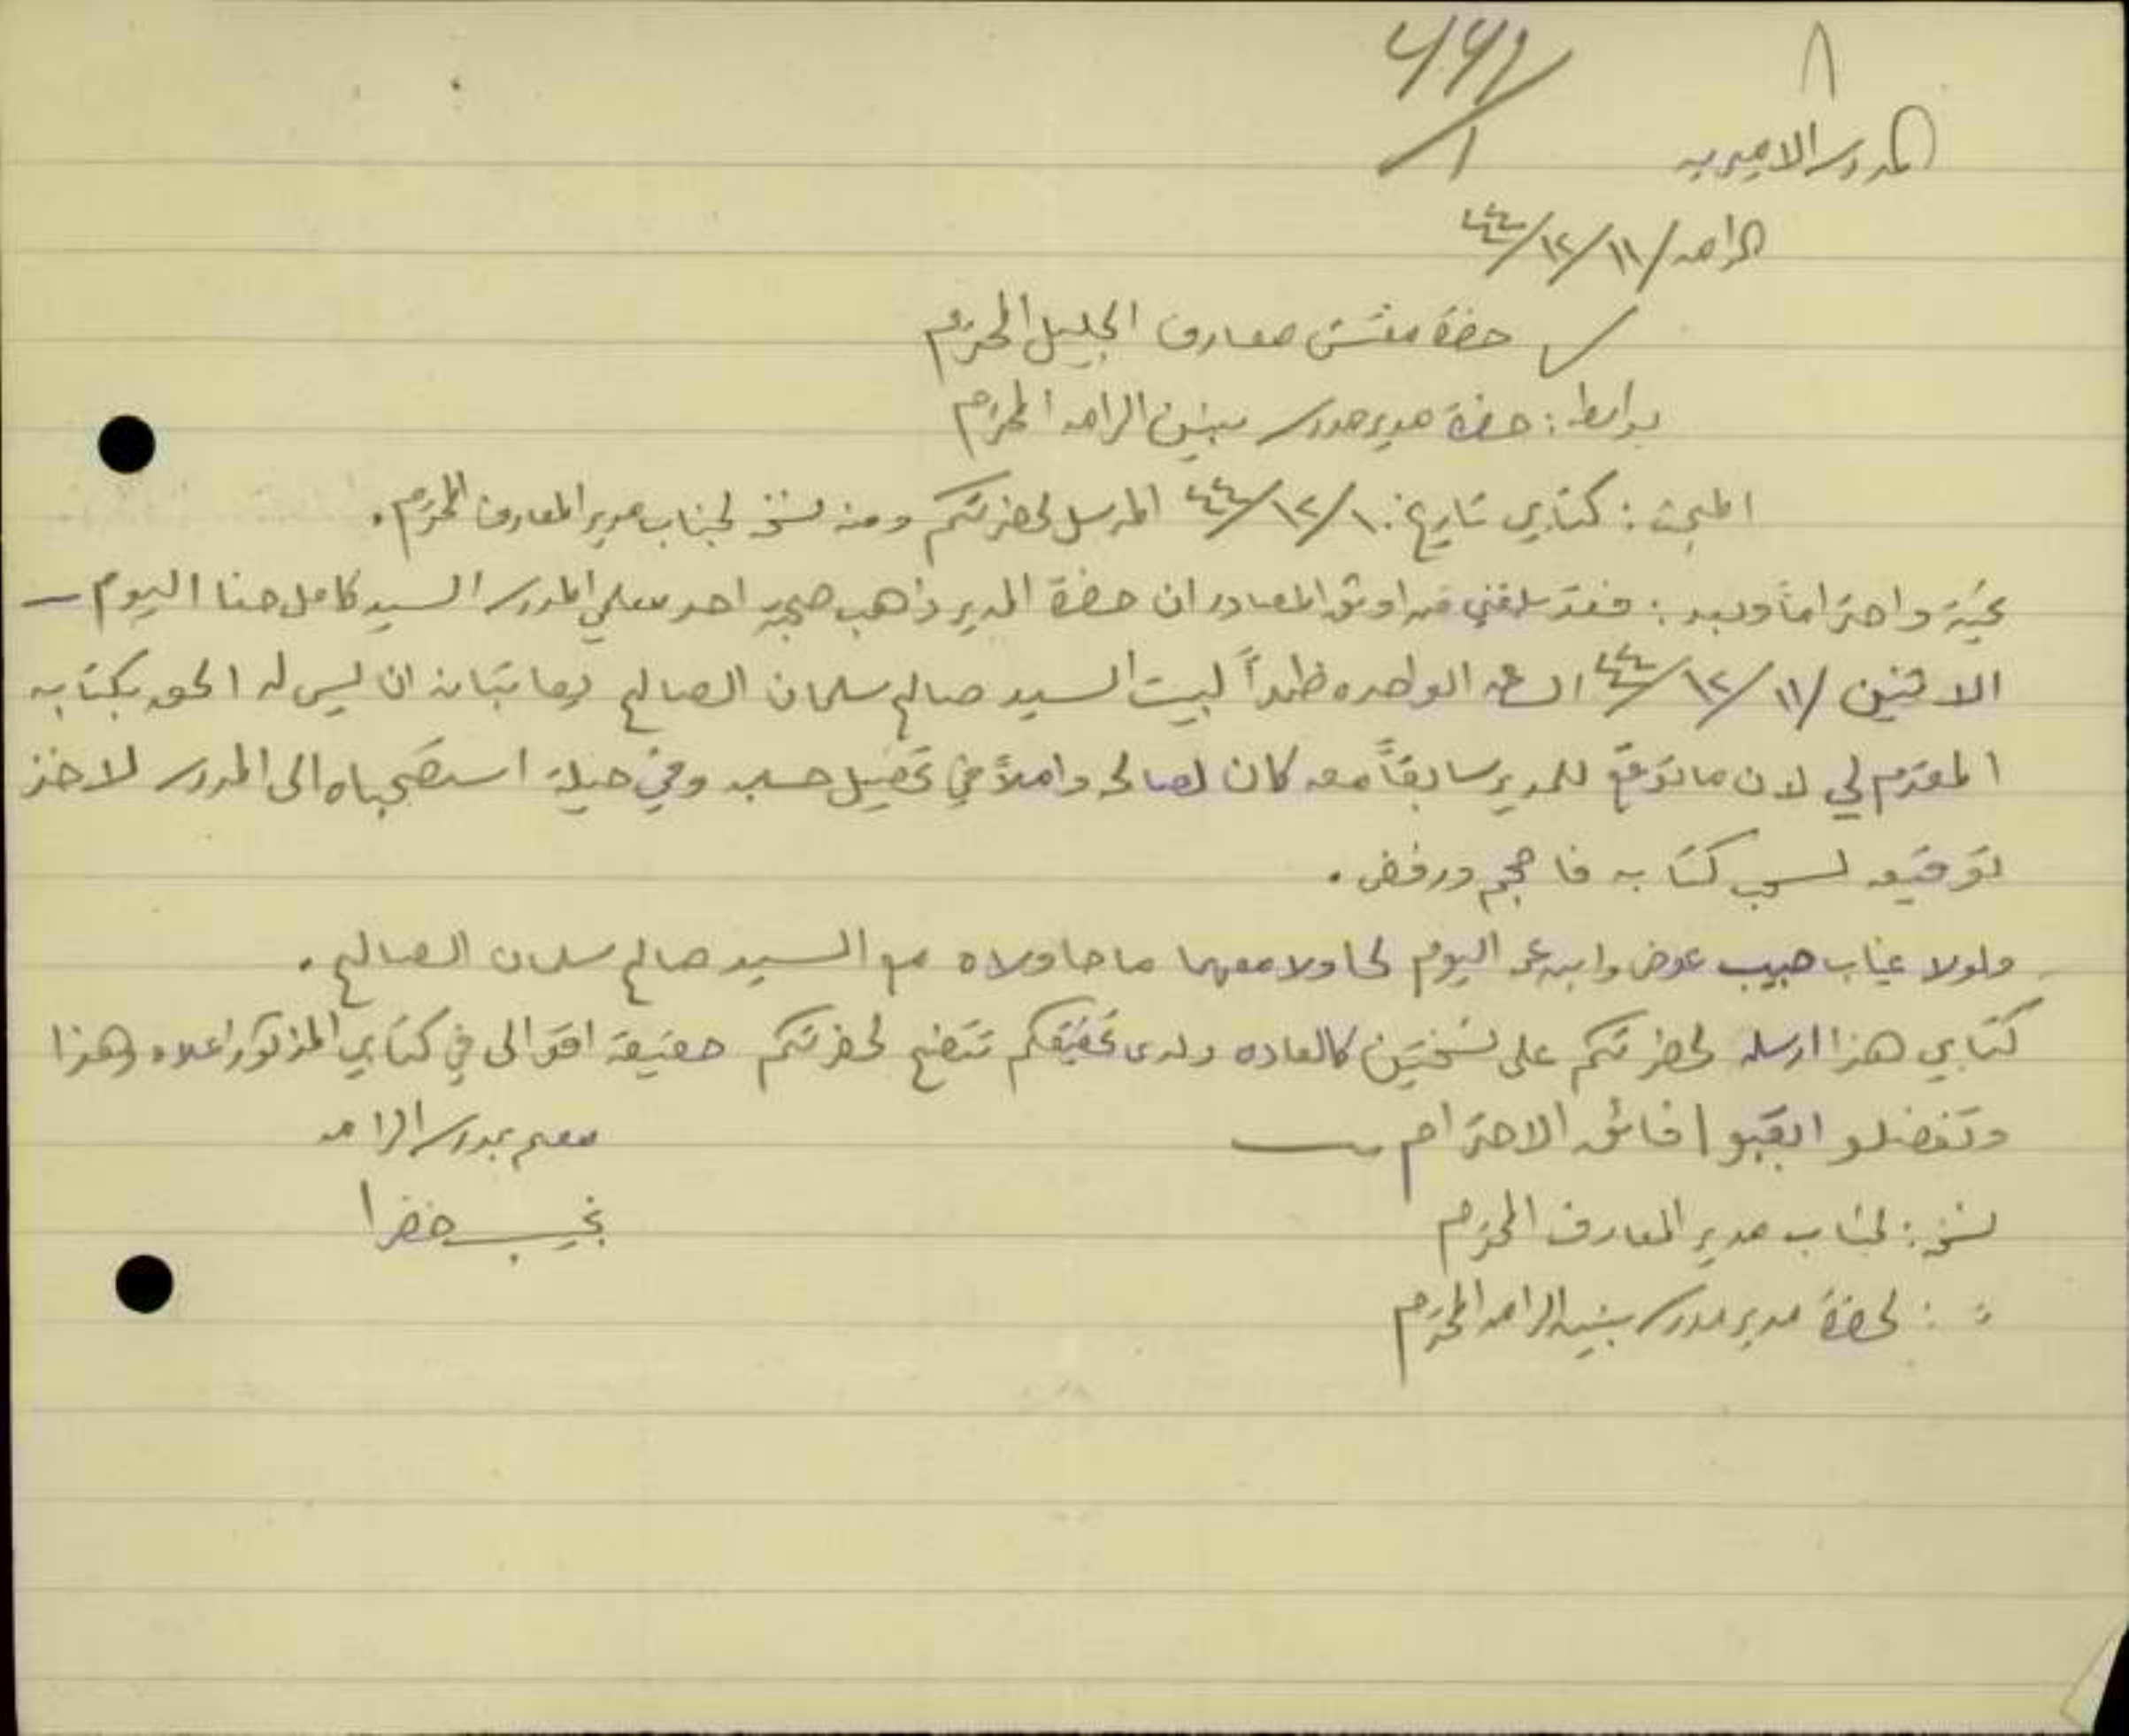 ٨
المدرسة الاميرية
الرامه /١١/١٢/٤٤
حضرة مفتش معارف الجليل المحترم
بواسطة : حضرة مدير مدرسة بنين الرامه المحترم
المبحث : كتابي تاريخ ١٠/١٢/٤٤ المرسل لحضرتكم ومنه نسخة لجناب مدير المعارف المحترم .
تحية واحتراماً وبعد : فقد بلغني من اوثق المصادر ان حضرة المدير ذهب صحبة احد معلمي المدرسة السيد كامل حنا اليوم
الاثنين /١١/١٢/٤٤ الساعه الواحده ظهراً لبيت السيد صالح سلمان الصالح يعاتبانه ان ليس له الحق بكتابه
المقدم لي لان ما توقع للمدير سابقاً معه كان لصالحه واملاً في تحصيل وفي حيلة استصحباه الى المدرسة لاخذ
توقيعه لسحب كتابه فاحجم ورفض .
ولولا غياب حبيب عوض وابنه اليوم لحاولا معهما ما حاولاه مع السيد صالح سلمان الصالح .
كتابي هذا ارسله لحضرتكم على نسختين كالعاده ولدى تحقيقكم تتضح لحضرتكم حقيقة اقوالي في كتابي المذكور اعلاه وهذا
وتفضلوا بقبول فائق الاحترام
معلم بمدرسة الرامه
نجيب خضرا
نسخة : لجناب مدير المعارف المحترم
" : لحضرة مدير مدرسة بنين الرامه المحترم